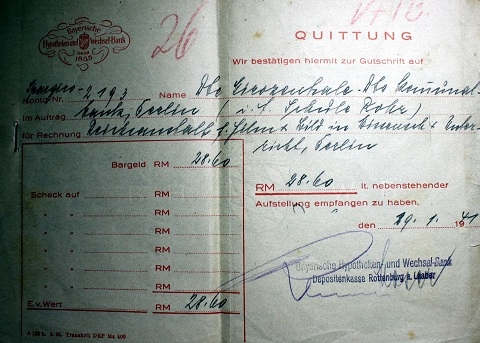 Bayerische
Hypotheken und Wechsel-Bank
1835
26
QUITTUNG
Wir bestätigen hiermit zur Gutschrift auf
Konto-Nr. 2193 Name Dte Girozentrale - Dte Kommunal-
im Auftrag bank, Berlin
für Rechnung Reichsanstalt f. Film u Bild in Wissensch u Unter-
richt, Berlin
Bargeld RM 28.60
RM 28.60 lt. nebenstehender
Scheck auf RM
Aufstellung empfangen zu haben.
" " RM
den 29.1.1941
" " RM
" " RM
Bayerische Hypotheken- und Wechsel-Bank
" " RM
Depositenkasse Rottenburg a. Laaber
" " RM
E.v.Wert RM 28.60